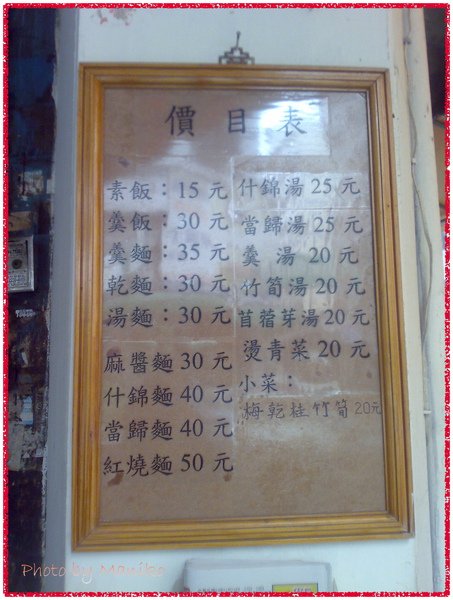 價目表
素飯：15元
羹飯：30元
羹麵：35元
乾麵：30元
湯麵：30元
麻醬麵30元
什錦麵40元
當歸麵40元
紅燒麵50元
什錦湯25元
當歸湯25元
羹湯20元
竹筍湯20元
苜蓿芽湯20元
燙青菜20元
小菜：
梅乾桂竹筍20元
Photo by Maniko